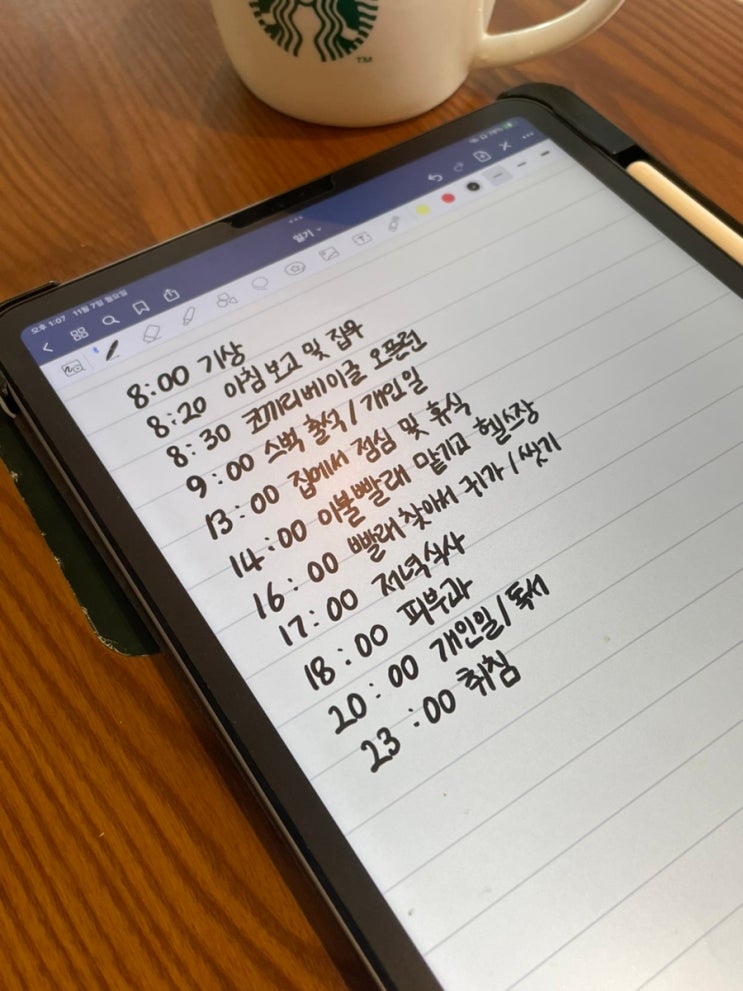 TM
오후 1:07 11월 7일 월요일
78%
일기
8:00 기상
8:20 아침 보고 및 집무
8:30 코끼리베이글 오픈런
9:00 스벅 출석/개인일
13:00 집에서 점심 및 휴식
14:00 이불빨래 맡기고 헬스장
16:00 빨래찾아서 귀가/씻기
17:00 저녁식사
18:00 피부과
20:00 개인일/독서
23:00 취침